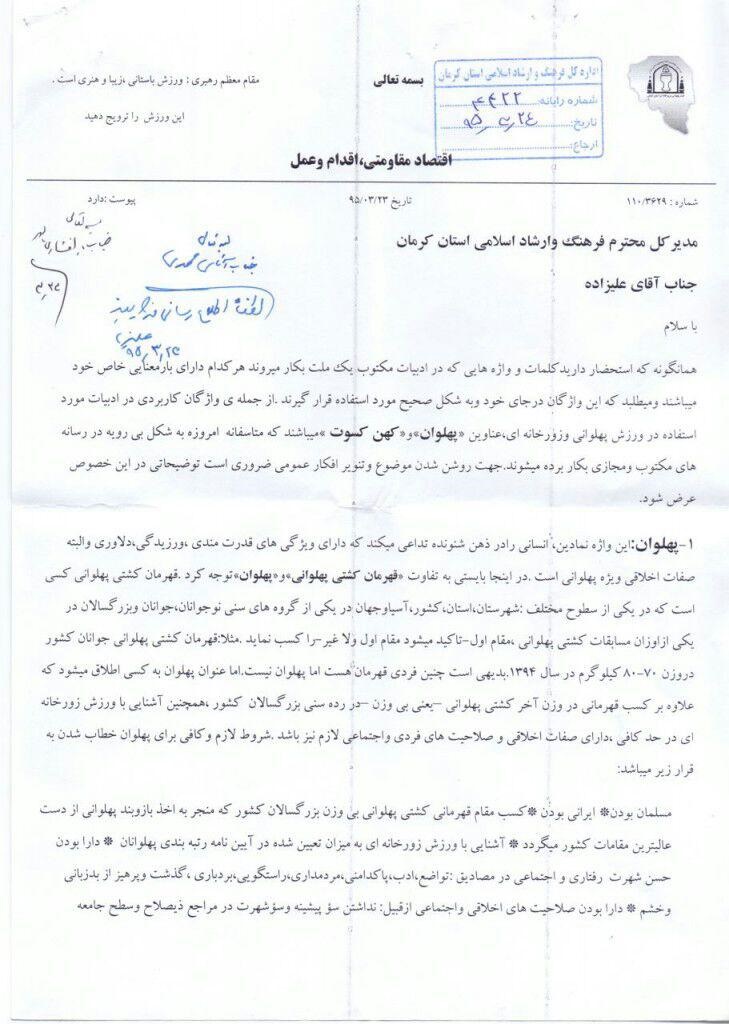 بسمه تعالی
مقام معظم رهبری : ورزش باستانی ،زیبا و هنری است .
این ورزش را ترویج دهید
اداره کل فرهنگ و ارشاد اسلامی استان کرمان
شماره رایانه: ۴۴۲۲
تاریخ: ۹۵,۳,۲۴
ارجاع:
اقتصاد مقاومتی،اقدام وعمل
شماره : ۱۱۰/۳۶۲۹
تاریخ ۹۵/۰۳/۲۳
پیوست :دارد
مدیر کل محترم فرهنگ وارشاد اسلامی استان کرمان
جناب آقای علیزاده
با سلام
بسمه تعالی
جناب آقای محمدی
لطفاً اطلاع رسانی فرمایید
۹۵,۳,۲۴
بسمه تعالی
همانگونه که استحضار داریدکلمات و واژه هایی که در ادبیات مکتوب یک ملت بکار میروند هرکدام دارای بارمعنایی خاص خود
میباشند ومیطلبد که این واژگان درجای خود وبه شکل صحیح مورد استفاده قرار گیرند .از جمله ی واژگان کاربردی در ادبیات مورد
استفاده در ورزش پهلوانی وزورخانه ای،عناوین «پهلوان»و«کهن کسوت »میباشند که متاسفانه امروزه به شکل بی رویه در رسانه
های مکتوب ومجازی بکار برده میشوند.جهت روشن شدن موضوع وتنویر افکار عمومی ضروری است توضیحاتی در این خصوص
عرض شود.
۱-پهلوان:این واژه نمادین،انسانی رادر ذهن شنونده تداعی میکند که دارای ویژگی های قدرت مندی ،ورزیدگی،دلاوری والبته
صفات اخلاقی ویژه پهلوانی است .در اینجا بایستی به تفاوت «قهرمان کشتی پهلوانی»و«پهلوان»توجه کرد .قهرمان کشتی پهلوانی کسی
است که در یکی از سطوح مختلف :شهرستان،استان،کشور،آسیاوجهان در یکی از گروه های سنی نوجوانان،جوانان وبزرگسالان در
یکی ازاوزان مسابقات کشتی پهلوانی ،مقام اول-تاکید میشود مقام اول ولا غیر-را کسب نماید .مثلا:قهرمان کشتی پهلوانی جوانان کشور
دروزن ۷۰-۸۰ کیلوگرم در سال ۱۳۹۴.بدیهی است چنین فردی قهرمان هست اما پهلوان نیست.اما عنوان پهلوان به کسی اطلاق میشود که
علاوه بر کسب قهرمانی در وزن آخر کشتی پهلوانی –یعنی بی وزن –در رده سنی بزرگسالان کشور ،همچنین آشنایی با ورزش زورخانه
ای در حد کافی ،دارای صفات اخلاقی و صلاحیت های فردی واجتماعی لازم نیز باشد .شروط لازم وکافی برای پهلوان خطاب شدن به
قرار زیر میباشد:
مسلمان بودن* ایرانی بودن *کسب مقام قهرمانی کشتی پهلوانی بی وزن بزرگسالان کشور که منجر به اخذ بازوبند پهلوانی از دست
عالیترین مقامات کشور میگردد * آشنایی با ورزش زورخانه ای به میزان تعیین شده در آیین نامه رتبه بندی پهلوانان * دارا بودن
حسن شهرت رفتاری و اجتماعی در مصادیق :تواضع،ادب،پاکدامنی،مردمداری،راستگویی،بردباری ،گذشت وپرهیز از بدزبانی
وخشم * دارا بودن صلاحیت های اخلاقی واجتماعی ازقبیل: نداشتن سؤ پیشینه وسؤشهرت در مراجع ذیصلاح وسطح جامعه